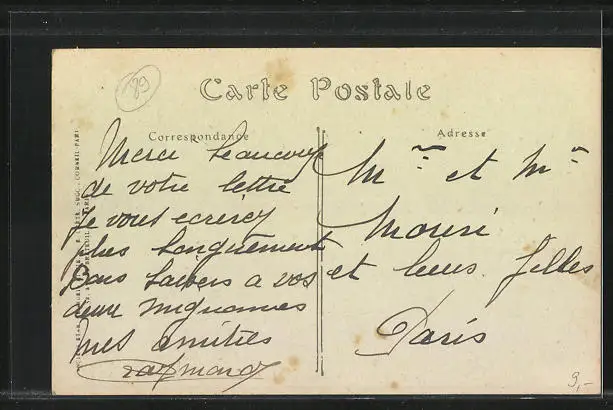 89
Carte Postale
Correspondance
Adresse
Merci beaucoup
de votre lettre
Je vous
plus longuement
Bons baisers a vos
deux mignonnes
mes amities
Raymond
Mr et Me
et leurs filles
Paris
9,-